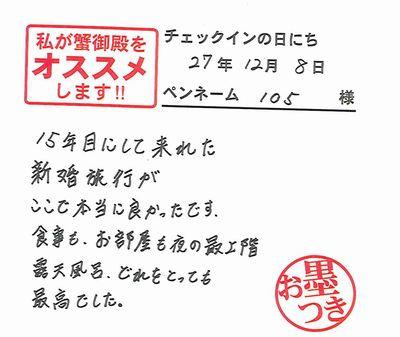 私が蟹御殿を
オススメ
します!!
チェックインの日にち
27年 12月 8日
ペンネーム 105 様
15年目にして来れた
新婚旅行が
ここで本当に良かったです.
食事も、お部屋も夜の最上階
露天風呂、どれをとっても
最高でした。
お墨つき